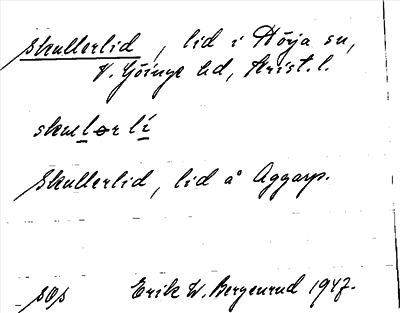 Skullerlid, lid i Hörja sn,
V. Göinge hd, Krist. l.
skulørlí
Skullerlid, lid å Aggarp.
sOs Erik W. Bergenrud 1947.